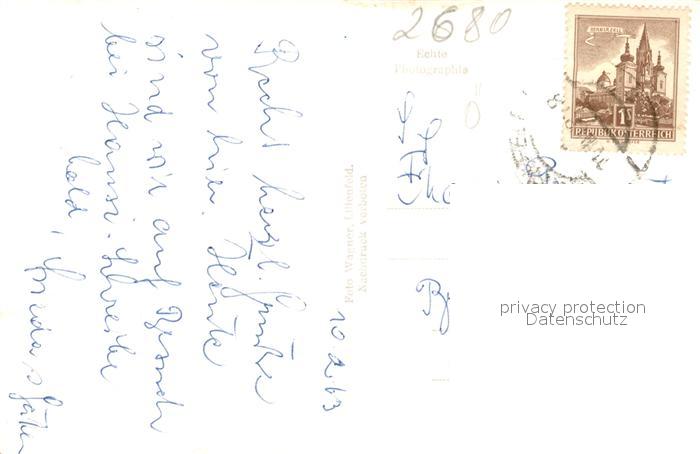 2680
Echte
Photographie
MARIAZELL
1S
REPUBLIK ÖSTERREICH
Foto Wagner, Lilienfeld.
Nachdruck verboten
10.2.63
Recht herzl. Grüße
von hier. Heute
sind wir auf Besuch
bei Hansi. Schreibe
bald,
privacy protection
Datenschutz